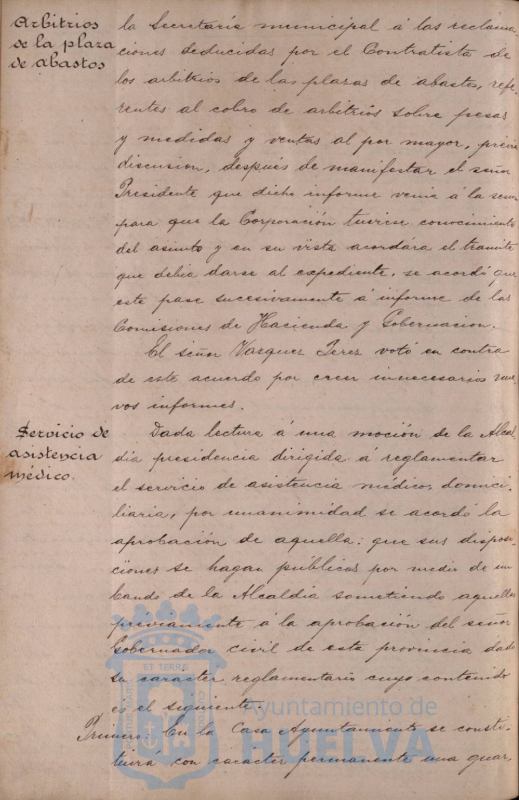 Arbitrios
de la plaza
de abastos
la Secretaría municipal á las reclama-
ciones deducidas por el Contratista de
los arbitrios de las plazas de abastos, refe-
rentes al cobro de arbitrios sobre pesas
y medidas y ventas al por mayor, previa
discusion, después de manifestar el señor
Presidente que dicho informe venia á la sesión
para que la Corporación tuviese conocimiento
del asunto y en su vista acordara el trámite
que debia darse al expediente, se acordó que
este pase sucesivamente á informe de las
Comisiones de Hacienda y Gobernacion.
El señor Vazquez Perez votó en contra
de este acuerdo por creer innecesarios nue-
vos informes.
Servicio de
asistencia
médico.
Dada lectura á una moción de la Alcal-
dia presidencia dirigida á reglamentar
el servicio de asistencia médico, domici-
liaria, por unanimidad se acordó la
aprobación de aquella: que sus disposi-
ciones se hagan públicas por medio de un
bando de la Alcaldía sometiendo aquellas
previamente á la aprobación del señor
Gobernador civil de esta provincia dado
su carácter reglamentario cuyo contenido
es el siguiente.
Primero: En la Casa Ayuntamiento se consti-
tuira con caracter permanente una guar-
ET TERRÆ
Ayuntamiento de
HUELVA